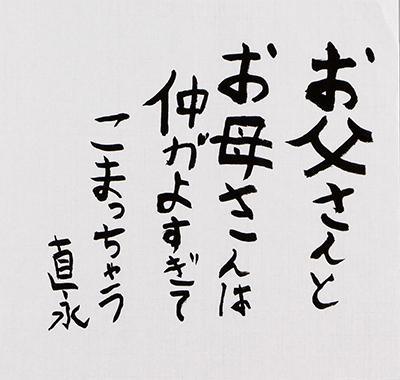 お父さんと
お母さんは
仲がよすぎて
こまっちゃう
直永